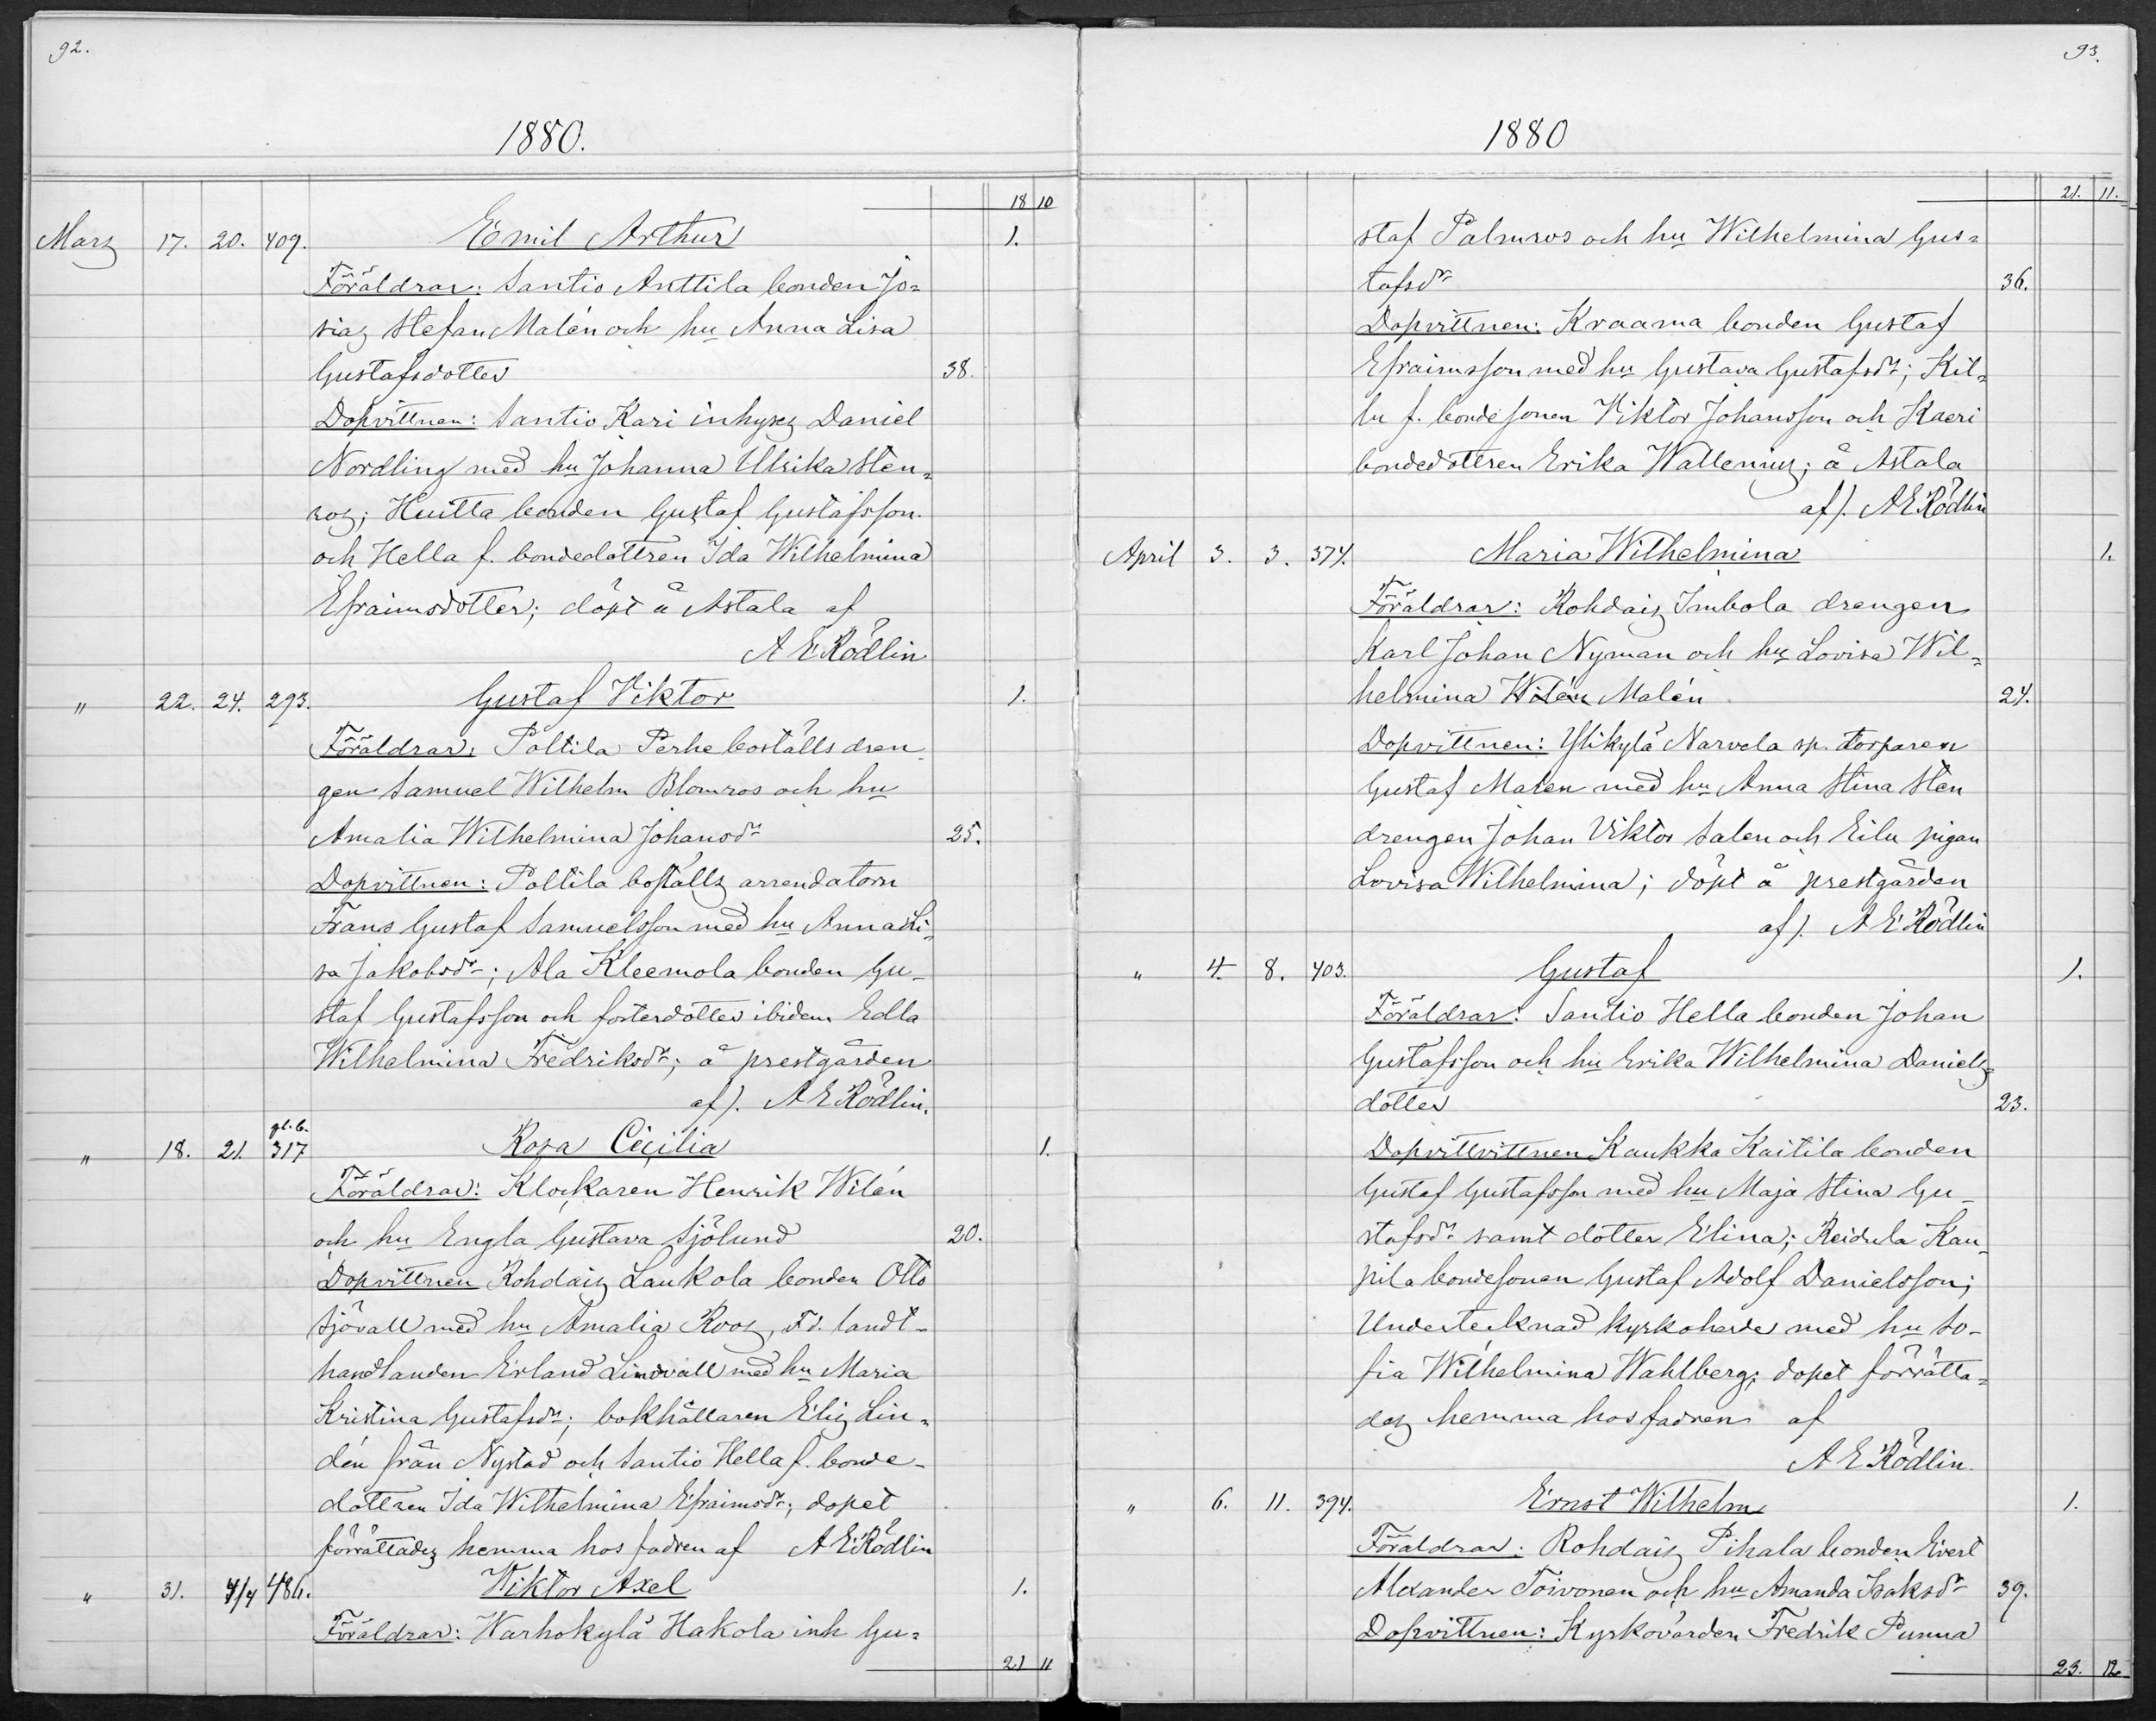 92.
1880.
18 10
Mars 17. 20. 409. Emil Arthur 1.
Föräldrar: Santio Anttila bonden Jo-
sias Stefan Malén och hu Anna Lisa
Gustafsdotter 38.
Dopvittnen: Santio Kari inhyses Daniel
Nordling med hu Johanna Ulrika Sten-
ros; Huitta bonden Gustaf Gustafsson
och Hella f. bondedottren Ida Wilhelmina
Efraimsdotter; döpt å Astala af
A E Rödlin
" 22. 24. 293. Gustaf Viktor 1.
Föräldrar: Poltila Perhe boställs dren-
gen Samuel Wilhelm Blomros och hu
Amalia Wilhelmina Johansdr 25.
Dopvittnen: Poltila boställs arrendatorn
Frans Gustaf Samuelsson med hu Anna Li-
sa Jakobsdr; Ala Kleemola bonden Gu-
staf Gustafsson och fosterdotter ibidem Edla
Wilhelmina Fredriksdr; å prestgården
af). A E Rödlin.
" 18. 21. gl. b. 317 Rosa Cecilia 1.
Föräldrar: Klockaren Henrik Wilén
och hu Engla Gustava Sjölund 20.
Dopvittnen Kohdais Laukola bonden Otto
Sjövall med hu Amalia Roos, F.d. landt-
handlanden Erland Lindvall med hu Maria
Kristina Gustafsdr; bokhållaren Elis Lin-
dén från Nystad och Santio Hella f. bonde-
dottren Ida Wilhelmina Efraimsdr; dopet
förrättades hemma hos fadren af A E Rödlin
" 31. 4/4 486. Viktor Axel 1.
Föräldrar: Warhokylä Hakola inh Gu-
21 11
93.
1880
21. 11.
staf Palmros och hu Wilhelmina Gus-
tafsdr 36.
Dopvittnen: Kraama bonden Gustaf
Efraimsson med hu Gustava Gustafsdr; Kil-
lu f. bondesonen Viktor Johansson och Kaeri
bondedottren Erika Wallenius; å Astala
af). A E Rödlin
April 3. 3. 374. Maria Wilhelmina 1.
Föräldrar: Rohdais Imbola drengen
Karl Johan Nyman och hu Lovisa Wil-
helmina Wilén Malén 24.
Dopvittnen: Ylikylä Narvela sp. torparen
Gustaf Malen med hu Anna Stina Sten
drengen Johan Viktor Salen och Eilu pigan
Lovisa Wilhelmina; döpt å prestgården
af). A E Rödlin
" 4. 8. 403. Gustaf 1.
Föräldrar: Santio Hella bonden Johan
Gustafsson och hu Erika Wilhelmina Daniels-
dotter 23.
Dopvittvittnen Kaukka Kaitila bonden
Gustaf Gustafsson med hu Maja Stina Gu-
stafsdr samt dotter Elina; Reidula Kau-
pila bondesonen Gustaf Adolf Danielsson;
Undertecknad kyrkoherde med hu So-
fia Wilhelmina Wahlberg; dopet förrätta-
des hemma hos fadren af
A E Rödlin.
" 6. 11. 394. Ernst Wilhelm 1.
Föräldrar: Rohdais Pihala bonden Evert
Alexander Toivonen och hu Amanda Isaksdr 39.
Dopvittnen: Kyrkovärden Fredrik Punna
23. 12